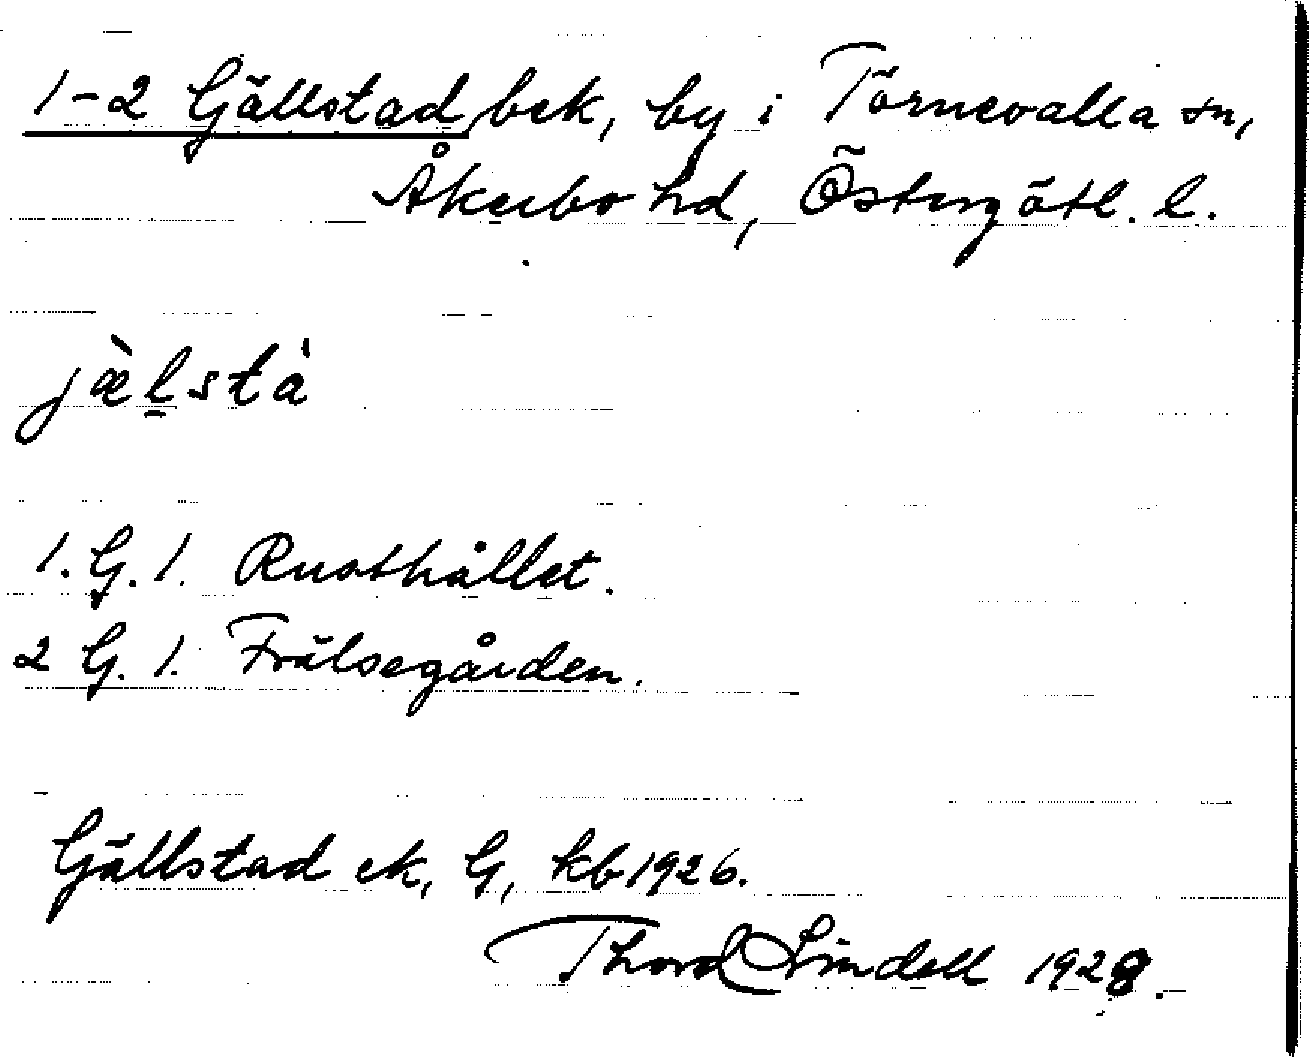 1-2 Gällstad bek, by i Törnevalla sn,
Åkerbo hd, Östergötl. l.
jæ̀l̠stà
1. G. 1. Rusthållet.
2 G. 1. Frälsegården.
Gällstad ek, G, kb 1926.
Thord Lindell 1928.